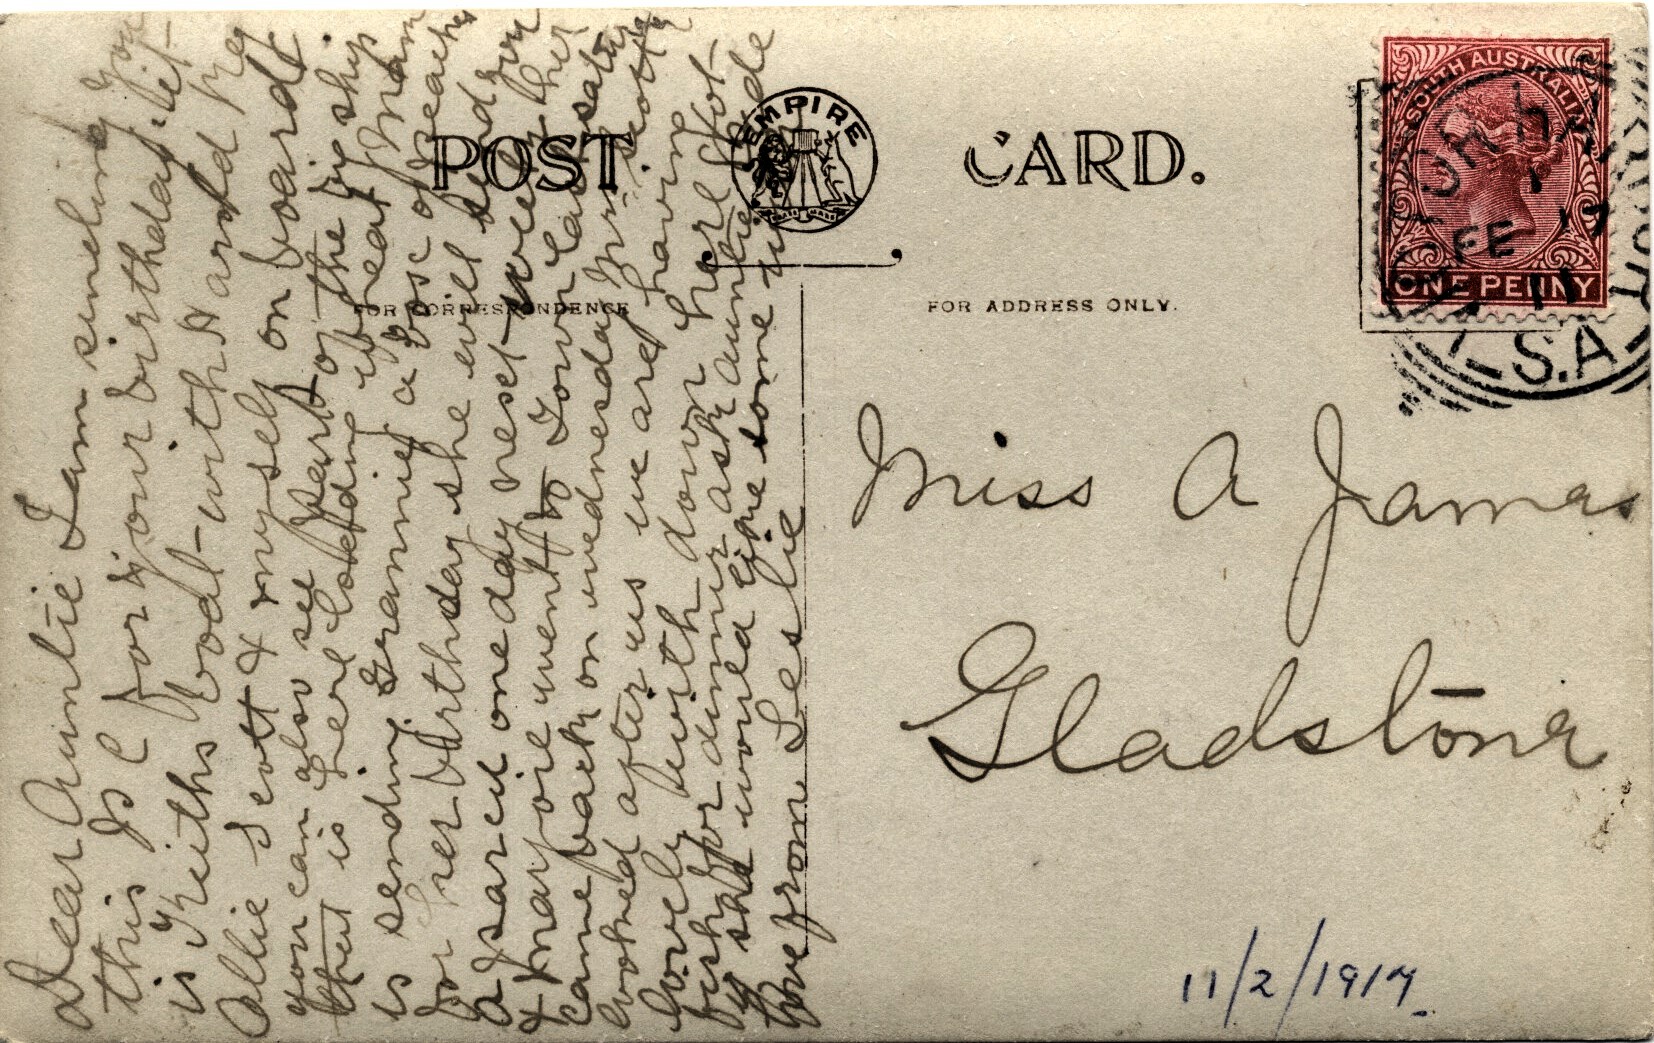 Dear Auntie I am sending you
this P C for your birthday it
is Keiths boat with Harold Reg
Ollie Scott & myself on board
you can also see part of the big ship
that is here loading wheat Mam
is sending Grannie a box of peaches
for her birthday she will send you
a parcel one day next week her
& Marjorie went to Town last saturday
came back on wednesday Mrs Scott
looked after us we are having
lovely with down here Got
fish for dinner ask auntie
if she would like some
love from Leslie
POST CARD.
EMPIRE
FOR CORRESPONDENCE
FOR ADDRESS ONLY.
Miss A James
Gladstone
11/2/1914
SOUTH AUSTRALIA
ONE PENNY
S.A
FE